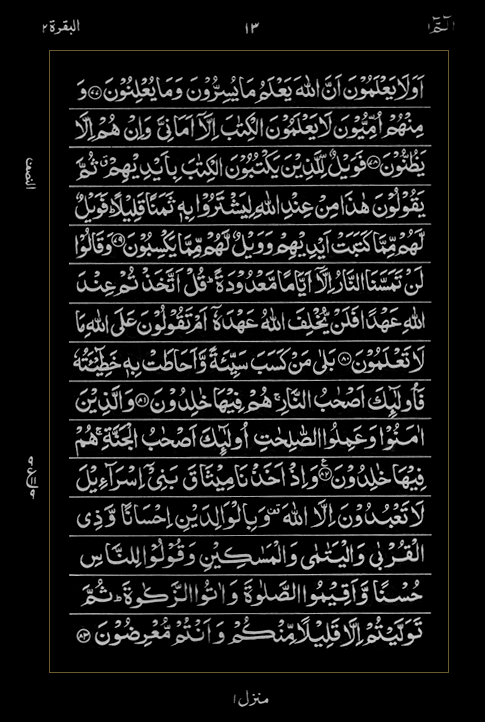 البقرة ٢
١٣
الٓمّٓ ١
اَوَلَا يَعْلَمُوْنَ اَنَّ اللّٰهَ يَعْلَمُ مَا يُسِرُّوْنَ وَمَا يُعْلِنُوْنَ ﴿۷۷﴾ وَ
مِنْهُمْ اُمِّيُّوْنَ لَا يَعْلَمُوْنَ الْكِتٰبَ اِلَّاۤ اَمَانِیَّ وَاِنْ هُمْ اِلَّا
يَظُنُّوْنَ ﴿۷۸﴾ فَوَيْلٌ لِّلَّذِيْنَ يَكْتُبُوْنَ الْكِتٰبَ بِاَيْدِيْهِمْ ثُمَّ
يَقُوْلُوْنَ هٰذَا مِنْ عِنْدِ اللّٰهِ لِيَشْتَرُوْا بِهٖ ثَمَنًا قَلِيْلًا ؕ فَوَيْلٌ
لَّهُمْ مِّمَّا كَتَبَتْ اَيْدِيْهِمْ وَوَيْلٌ لَّهُمْ مِّمَّا يَكْسِبُوْنَ ﴿۷۹﴾ وَقَالُوْا
لَنْ تَمَسَّنَا النَّارُ اِلَّاۤ اَيَّامًا مَّعْدُوْدَةً ؕ قُلْ اَتَّخَذْتُمْ عِنْدَ
اللّٰهِ عَهْدًا فَلَنْ يُّخْلِفَ اللّٰهُ عَهْدَهٗۤ اَمْ تَقُوْلُوْنَ عَلَى اللّٰهِ مَا
لَا تَعْلَمُوْنَ ﴿۸۰﴾ بَلٰى مَنْ كَسَبَ سَيِّئَةً وَّاَحَاطَتْ بِهٖ خَطِيْٓئَتُهٗ
فَاُولٰٓئِكَ اَصْحٰبُ النَّارِ ۚ هُمْ فِيْهَا خٰلِدُوْنَ ﴿۸۱﴾ وَالَّذِيْنَ
اٰمَنُوْا وَعَمِلُوا الصّٰلِحٰتِ اُولٰٓئِكَ اَصْحٰبُ الْجَنَّةِ ۚ هُمْ
فِيْهَا خٰلِدُوْنَ ﴿۸۲﴾ وَاِذْ اَخَذْنَا مِيْثَاقَ بَنِیْۤ اِسْرَآءِيْلَ
لَا تَعْبُدُوْنَ اِلَّا اللّٰهَ وَبِالْوَالِدَيْنِ اِحْسَانًا وَّذِی
الْقُرْبٰى وَالْيَتٰمٰى وَالْمَسٰكِيْنِ وَقُوْلُوْا لِلنَّاسِ
حُسْنًا وَّاَقِيْمُوا الصَّلٰوةَ وَاٰتُوا الزَّكٰوةَ ؕ ثُمَّ
تَوَلَّيْتُمْ اِلَّا قَلِيْلًا مِّنْكُمْ وَاَنْتُمْ مُّعْرِضُوْنَ ﴿۸۳﴾
منزل ١